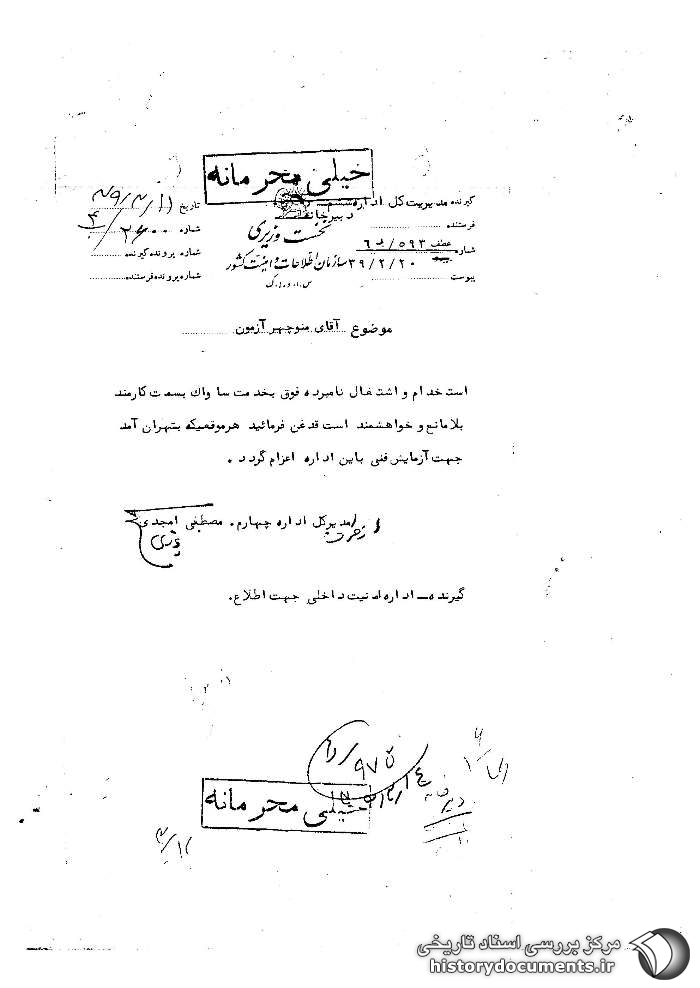 خیلی محرمانه
گیرنده مدیریت کل اداره ششم
دبیرخانه
فرستنده
نخست وزیری
شماره عطف ۵۹۳/ ۶
۳۹/۲/۲۰
سازمان اطلاعات و امنیت کشور
س.ا.و.ا.ک
پیوست
تاریخ
شماره
شماره پرونده گیرنده
شماره پرونده فرستنده
موضوع آقای منوچهر آزمون
استخدام و اشتغال نامبرده فوق بخدمت ساواك بسمت کارمند
بلامانع و خواهشمند است قدغن فرمائید هرموقعیکه بتهران آمد
جهت آزمایش فنی باین اداره اعزام گردد.
مدیرکل اداره چهارم. مصطفی امجدی
گیرنده ــ اداره امنیت داخلی جهت اطلاع.
خیلی محرمانه
مرکز بررسی اسناد تاریخی
historydocuments.ir